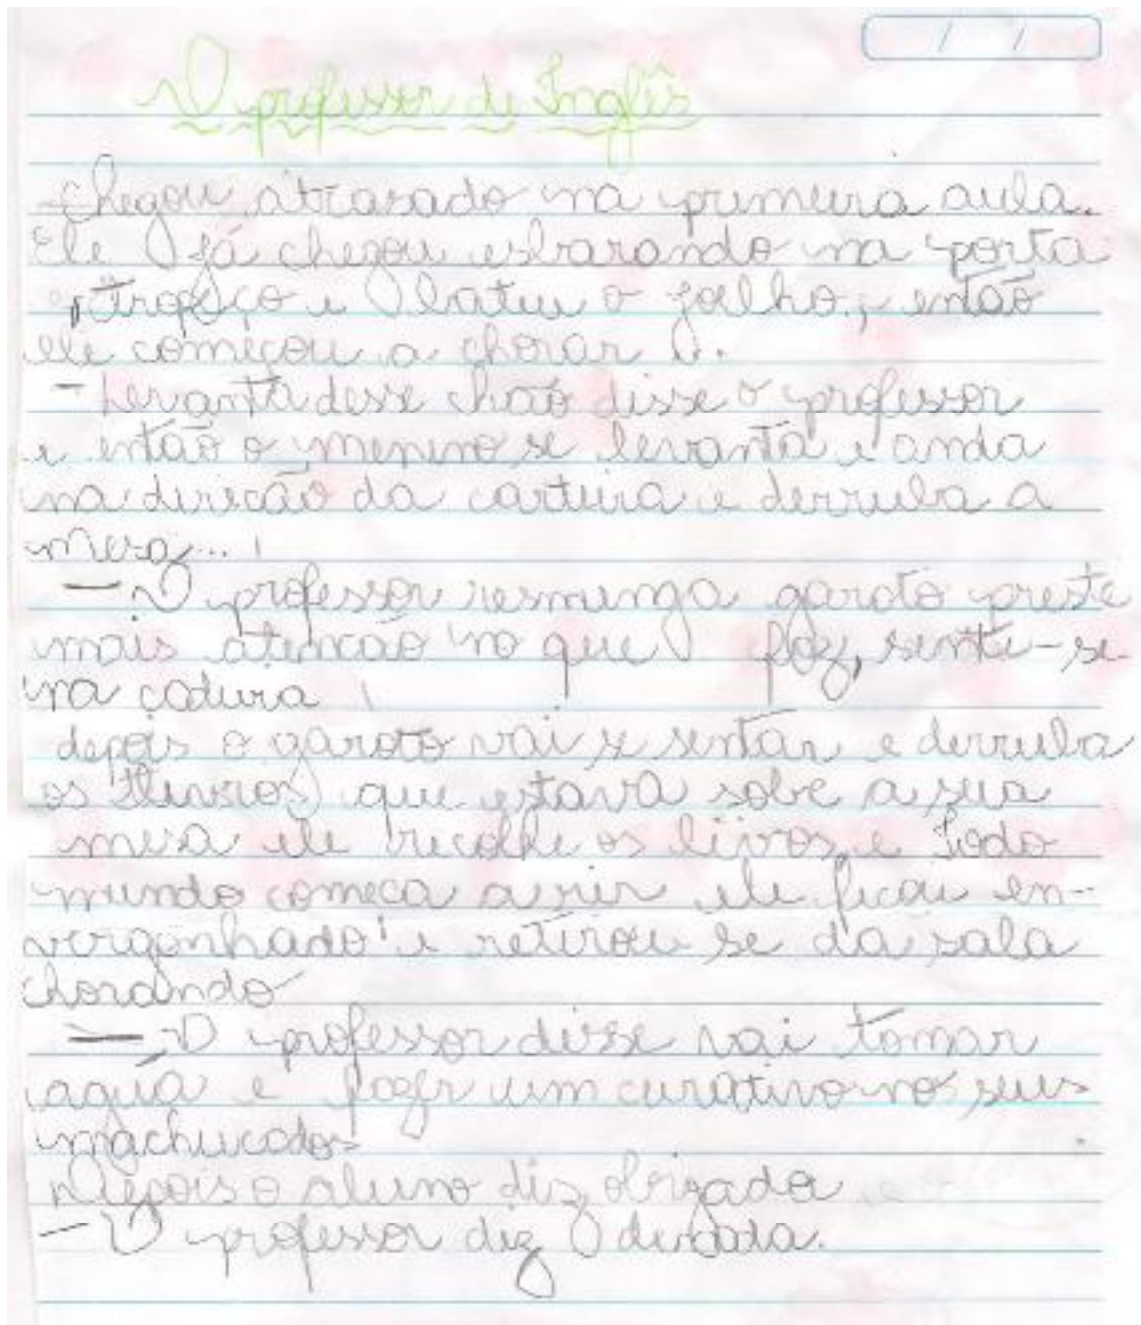 O professor de Inglês
Chegou atrasado na primeira aula.
Ele já chegou esbarando na porta
, tropeço e bateu o joelho, então
ele começou a chorar.
- Levanta desse chão disse o professor
e então o menino se levanta e anda
na direção da carteira e derruba a
mesa...
— O professor resmunga garoto preste
mais atencão no que faz, sente-se
na cadeira
depois o garoto vai se sentar e derruba
os livros que estava sobe a sua
mesa ele recolhe os livros e todo
mundo começa a rir ele ficou en-
vergonhado e retirou se da sala
chorando
— O professor disse vai tomar
agua e fazer um curativo nos seus
machucados
Depois o aluno diz obrigado
- O professor diz de nada.